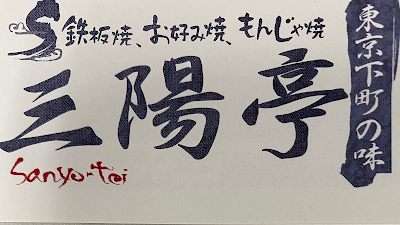 S鉄板焼、お好み焼、もんじゃ焼
三陽亭
東京下町の味
Sanyo-tei